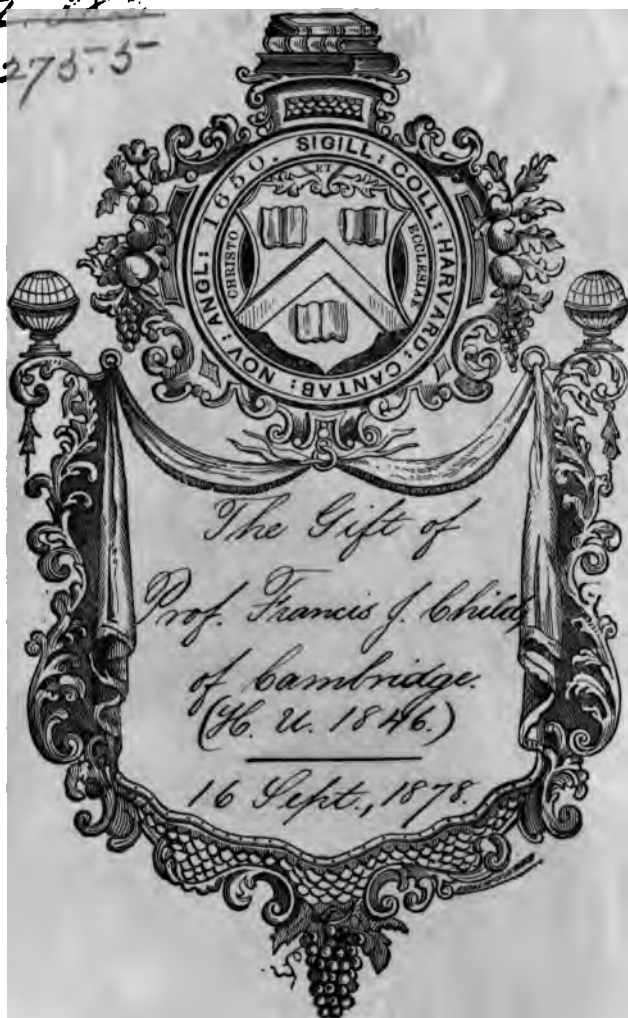 275.5
SIGILL: COLL: HARVARD: CANTAB: NOV: ANGL: 1650.
CHRISTO
ET
ECCLESIAE
The Gift of
Prof. Francis J. Child,
of Cambridge.
(H. U. 1846.)
16 Sept., 1878.